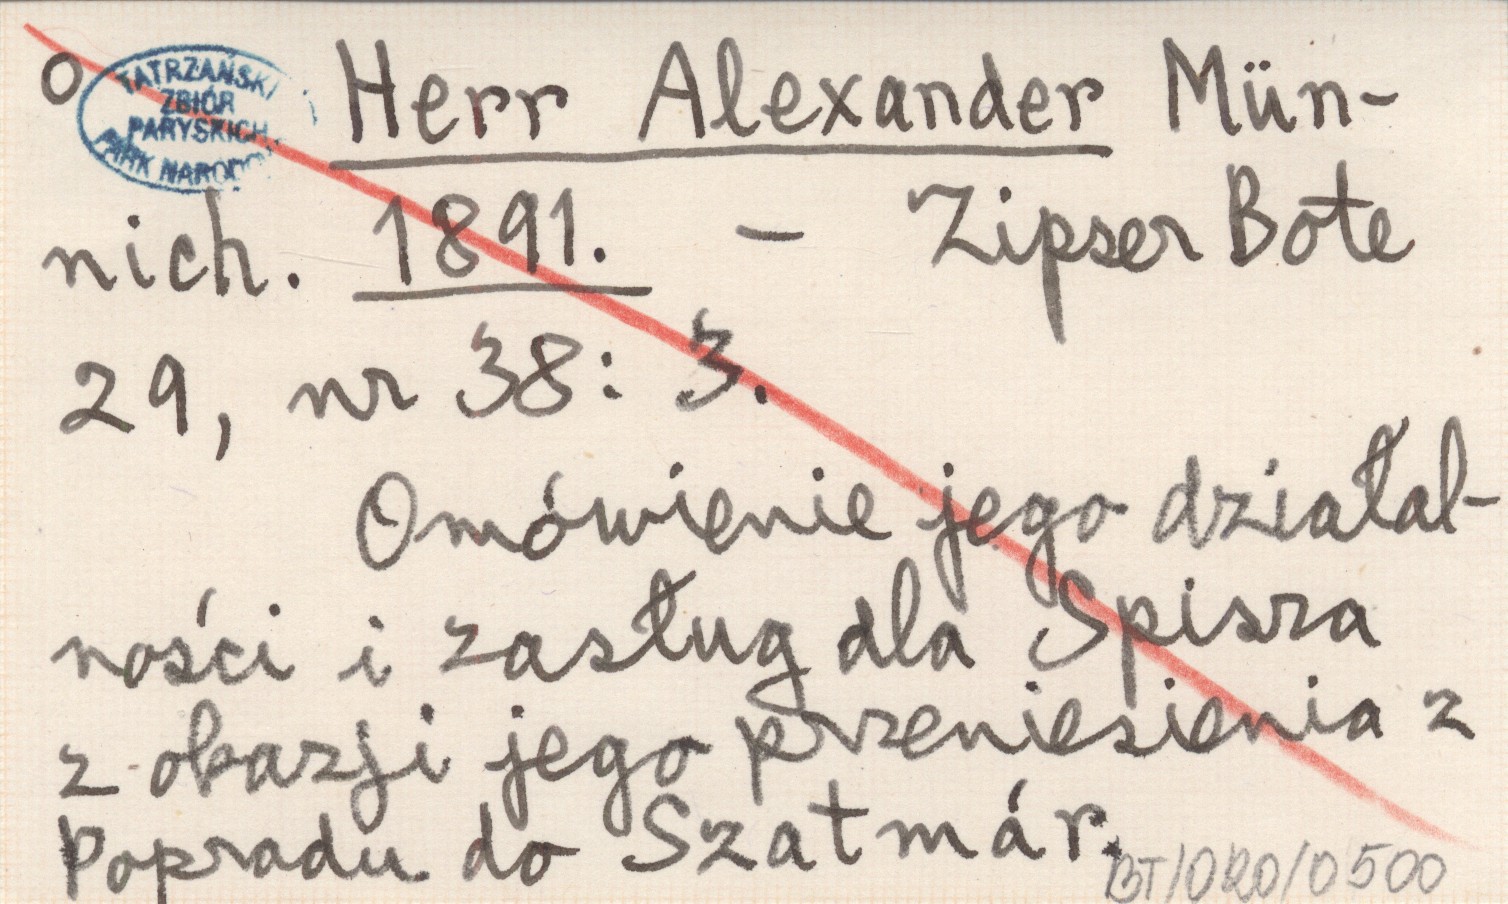 O
TATRZAŃSKI
ZBIÓR
PARYSKICH
PARK NARODO
Herr Alexander Mün-
nich. 1891. – Zipser Bote
29, nr 38: 3.
Omówienie jego działal-
ności i zasług dla Spisza
z okazji jego przeniesienia z
Popradu do Szatmár.
BT/020/0500